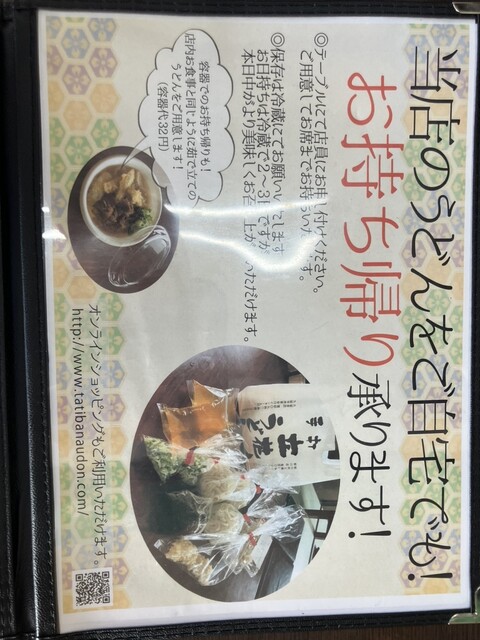 当店のうどんをご自宅でも!
お持ち帰り承ります!
◎テーブルにて店員にお申し付けください。
ご用意してお席までお持ちいた す。
◎保存は冷蔵にてお願いいたします
お日持ちは冷蔵で2〜3 ですが
本日中がより美味しくお 上が いただけます。
容器でのお持ち帰りも!
店内お食事と同じように茹で立ての
うどんをご用意します!
(容器代32円)
うどん
オンラインショッピングもご利用いただけます。
http://www.tatibanaudon.com/